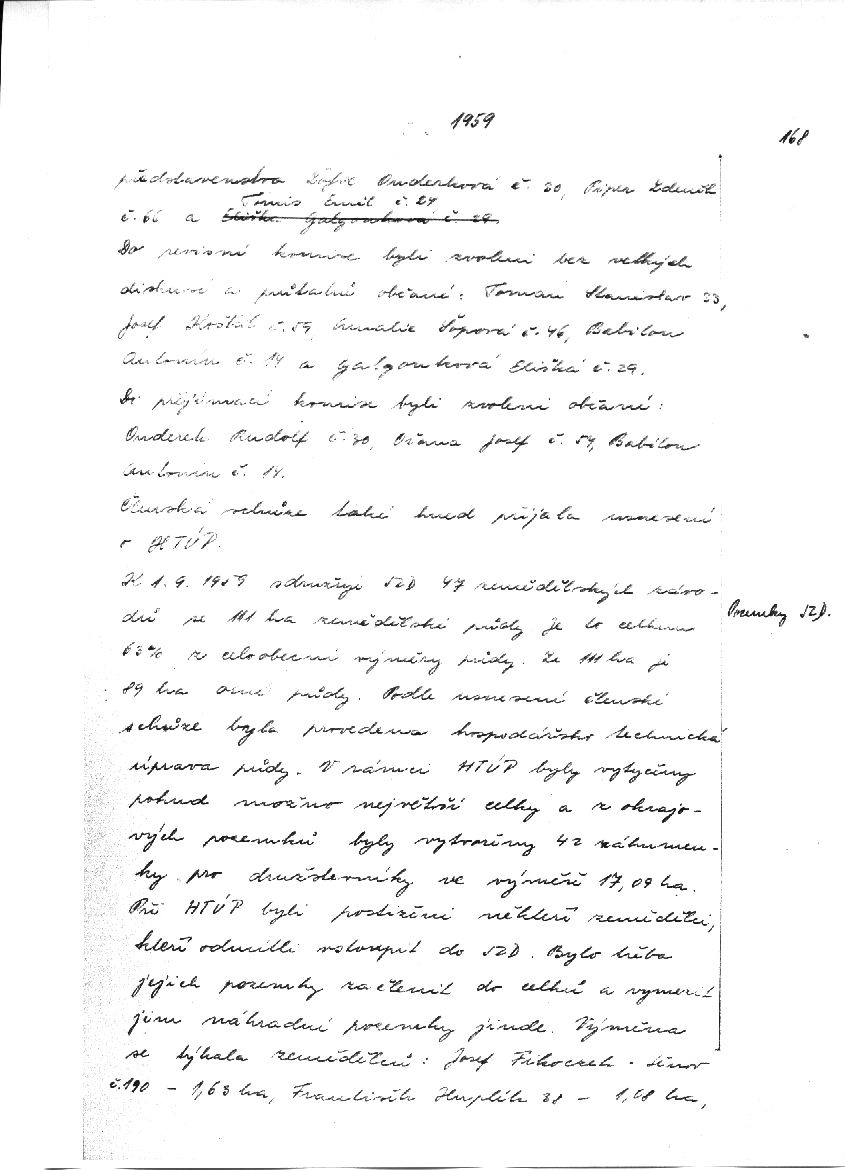 1959
168
představenstva Žofie Onderková č. 30, Piper Zdeněk
Tomis Emil č. 24
č. 66 a Eliška Galgonková č. 29.
Do revisní komise byli zvoleni bez velkých
diskusí a průtahů občané: Toman Stanislav 33,
Josef Košťál č. 59, Amalie Šopová č. 46, Babilon
Antonín č. 14 a Galgonková Eliška č. 29.
Do přijímací komise byli zvoleni občané:
Onderek Rudolf č. 30, Očana Josef č. 54, Babilon
Antonín č. 14.
Členská schůze také hned přijala usnesení
o HTÚP.
K 1. 9. 1959 sdružuje JZD 47 zemědělských závo-
dů se 111 ha zemědělské půdy je to celkem
63% z celoobecní výměry půdy. Ze 111 ha je
89 ha orné půdy. Podle usnesení členské
schůze byla provedena hospodářsko technická
úprava půdy. V rámci HTÚP byly vytyčeny
pokud možno největší celky a z okrajo-
vých pozemků byly vytvořeny 42 záhumen-
ky pro družstevníky ve výměře 17,09 ha.
Při HTÚP byli postiženi někteří zemědělci,
kteří odmítli vstoupit do JZD. Bylo třeba
jejich pozemky začlenit do celků a vyměřit
jim náhradní pozemky jinde. Výměna
se týkala zemědělců: Josef Fikoczek - Šenov
č. 190 - 1,63 ha, František Huplík 38 - 1,08 ha,
Pozemky JZD.